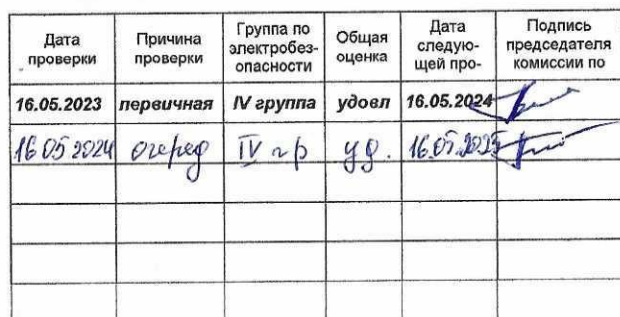 Дата проверки | Причина проверки | Группа по электробез-опасности | Общая оценка | Дата следую-щей про- | Подпись председателя комиссии по
16.05.2023 | первичная | IV группа | удовл | 16.05.2024
16.05.2024 | очеред | IV гр | уд. | 16.05.2025